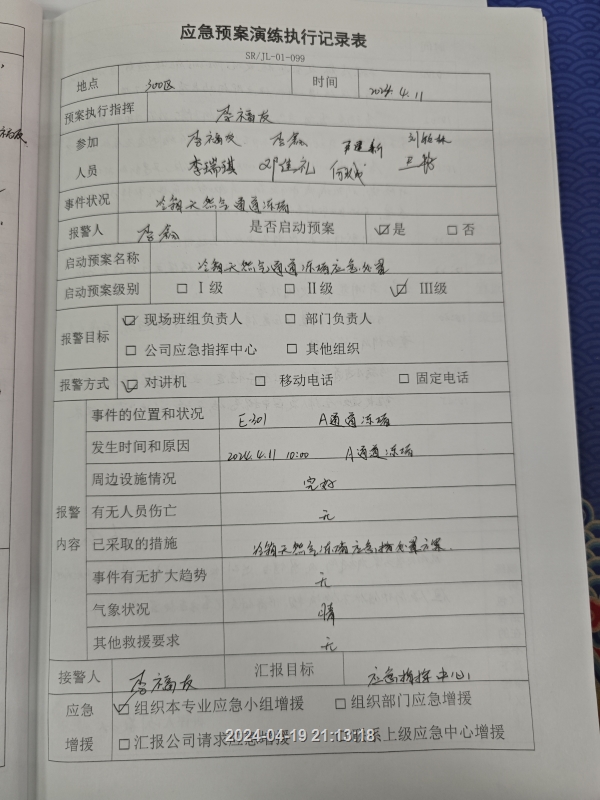 应急预案演练执行记录表
SR/JL-01-099
地点 300区 时间 2024.4.11
预案执行指挥 李福友
参加 李福友 李鑫
人员 李瑞琪 邓建礼
事件状况 冷箱天然气通道冻堵
报警人 李鑫 是否启动预案 ☑是 □否
启动预案名称 冷箱天然气通道冻堵应急处置
启动预案级别 □ Ⅰ级 □ Ⅱ级 ☑ Ⅲ级
报警目标 ☑ 现场班组负责人 □ 部门负责人
□ 公司应急指挥中心 □ 其他组织
报警方式 ☑ 对讲机 □ 移动电话 □ 固定电话
报警内容
事件的位置和状况 E-301 A通道冻堵
发生时间和原因 2024.4.11 10:00 A通道冻堵
周边设施情况 完好
有无人员伤亡 无
已采取的措施 冷箱天然气冻堵应急 处置方案.
事件有无扩大趋势 无
气象状况 晴
其他救援要求 无
接警人 李福友 汇报目标 应急指挥中心
应急 ☑ 组织本专业应急小组增援 □ 组织部门应急增援
增援 □ 汇报公司请求应急增援 系上级应急中心增援
2024-04-19 21:13:18